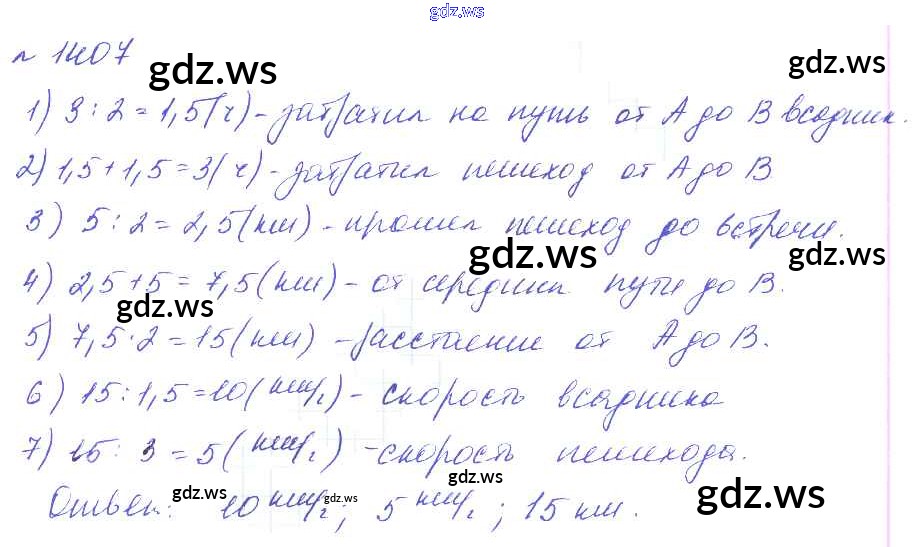 gdz.ws
№ 1407
gdz.ws gdz.ws
1) 3 : 2 = 1,5 (ч) - затратил на путь от А до В всадник.
2) 1,5 + 1,5 = 3 (ч) - затратил пешеход от А до В
3) 5 : 2 = 2,5 (км) - прошел пешеход до встречи.
gdz.ws gdz.ws
4) 2,5 + 5 = 7,5 (км) - от середины пути до В.
gdz.ws
5) 7,5 · 2 = 15 (км) - расстояние от А до В.
6) 15 : 1,5 = 10 (км/ч) - скорость всадника
7) 15 : 3 = 5 (км/ч) - скорость пешехода.
gdz.ws gdz.ws gdz.ws
Ответ: 10 км/ч ; 5 км/ч ; 15 км.